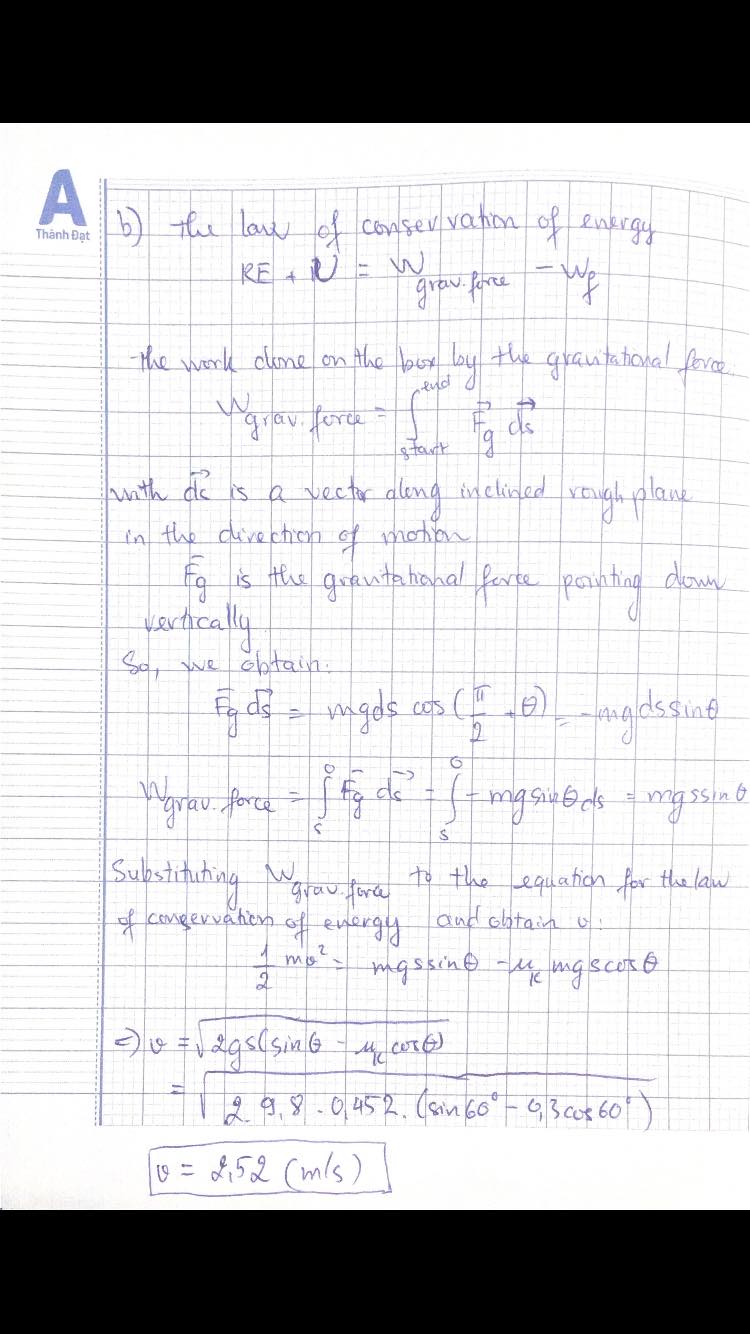 A
Thành Đạt
b) the law of conservation of energy
KE + U = W grav. force - Wf
the work done on the box by the gravitational force.
W grav. force = ∫ start end F⃗g d⃗s
with d⃗s is a vector along inclined rough plane
in the direction of motion
F̄g is the gravitational force pointing down
vertically.
So, we obtain:
F̄g d⃗s = mgds cos(π/2 + θ) = -mgdssinθ
W grav. force = ∫ s 0 F̄g d⃗s = ∫ s 0 - mgsinθ ds = mgssinθ
Substituting W grav. force to the equation for the law
of conservation of energy and obtain v:
1/2 mv² = mgssinθ - μk mgscosθ
⇒ v = √2gs(sinθ - μk cosθ)
= √2. 9,8 . 0,452. (sin60° - 0,3cos60°)
v = 2,52 (m/s)